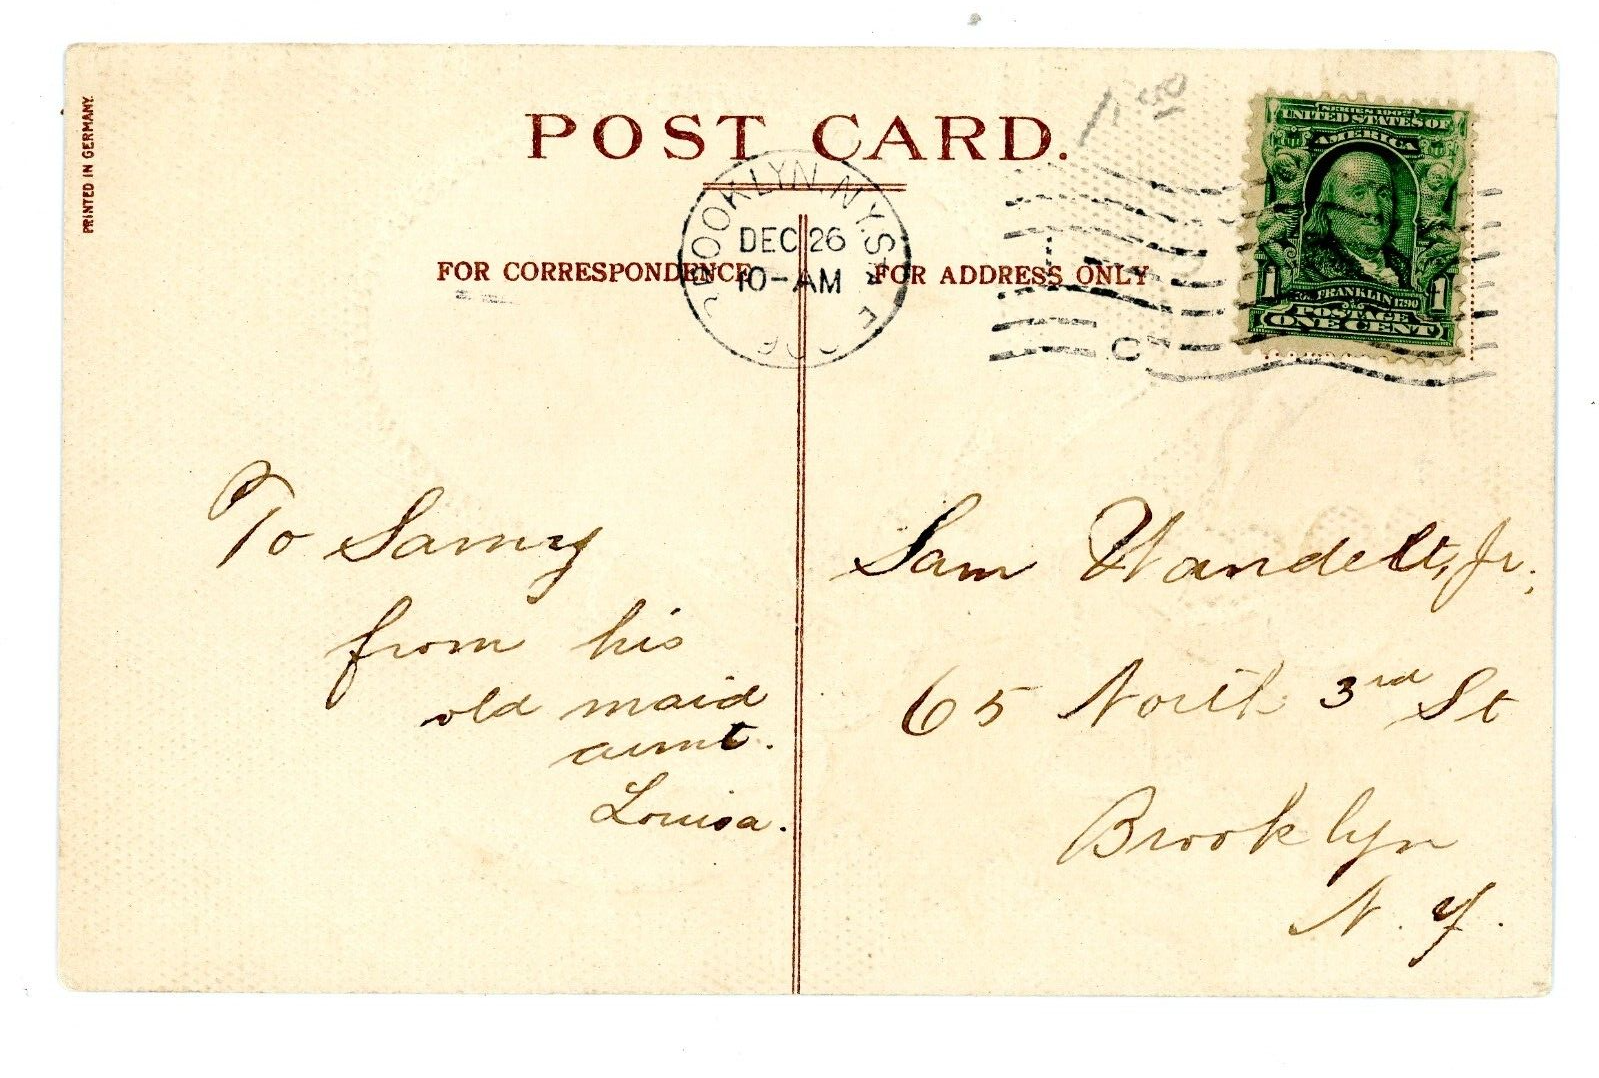 PRINTED IN GERMANY.
POST CARD.
BROOKLYN, N.Y. STA.
DEC 26
10-AM
FOR CORRESPONDENCE
FOR ADDRESS ONLY
SERIES 1902
UNITED STATES OF
AMERICA
1 FRANKLIN 1790 1
POSTAGE
ONE CENT
To Samy
from his
old maid
aunt.
Louisa.
Sam Wandelt, Jr.
65 North 3rd St
Brooklyn
N. Y.